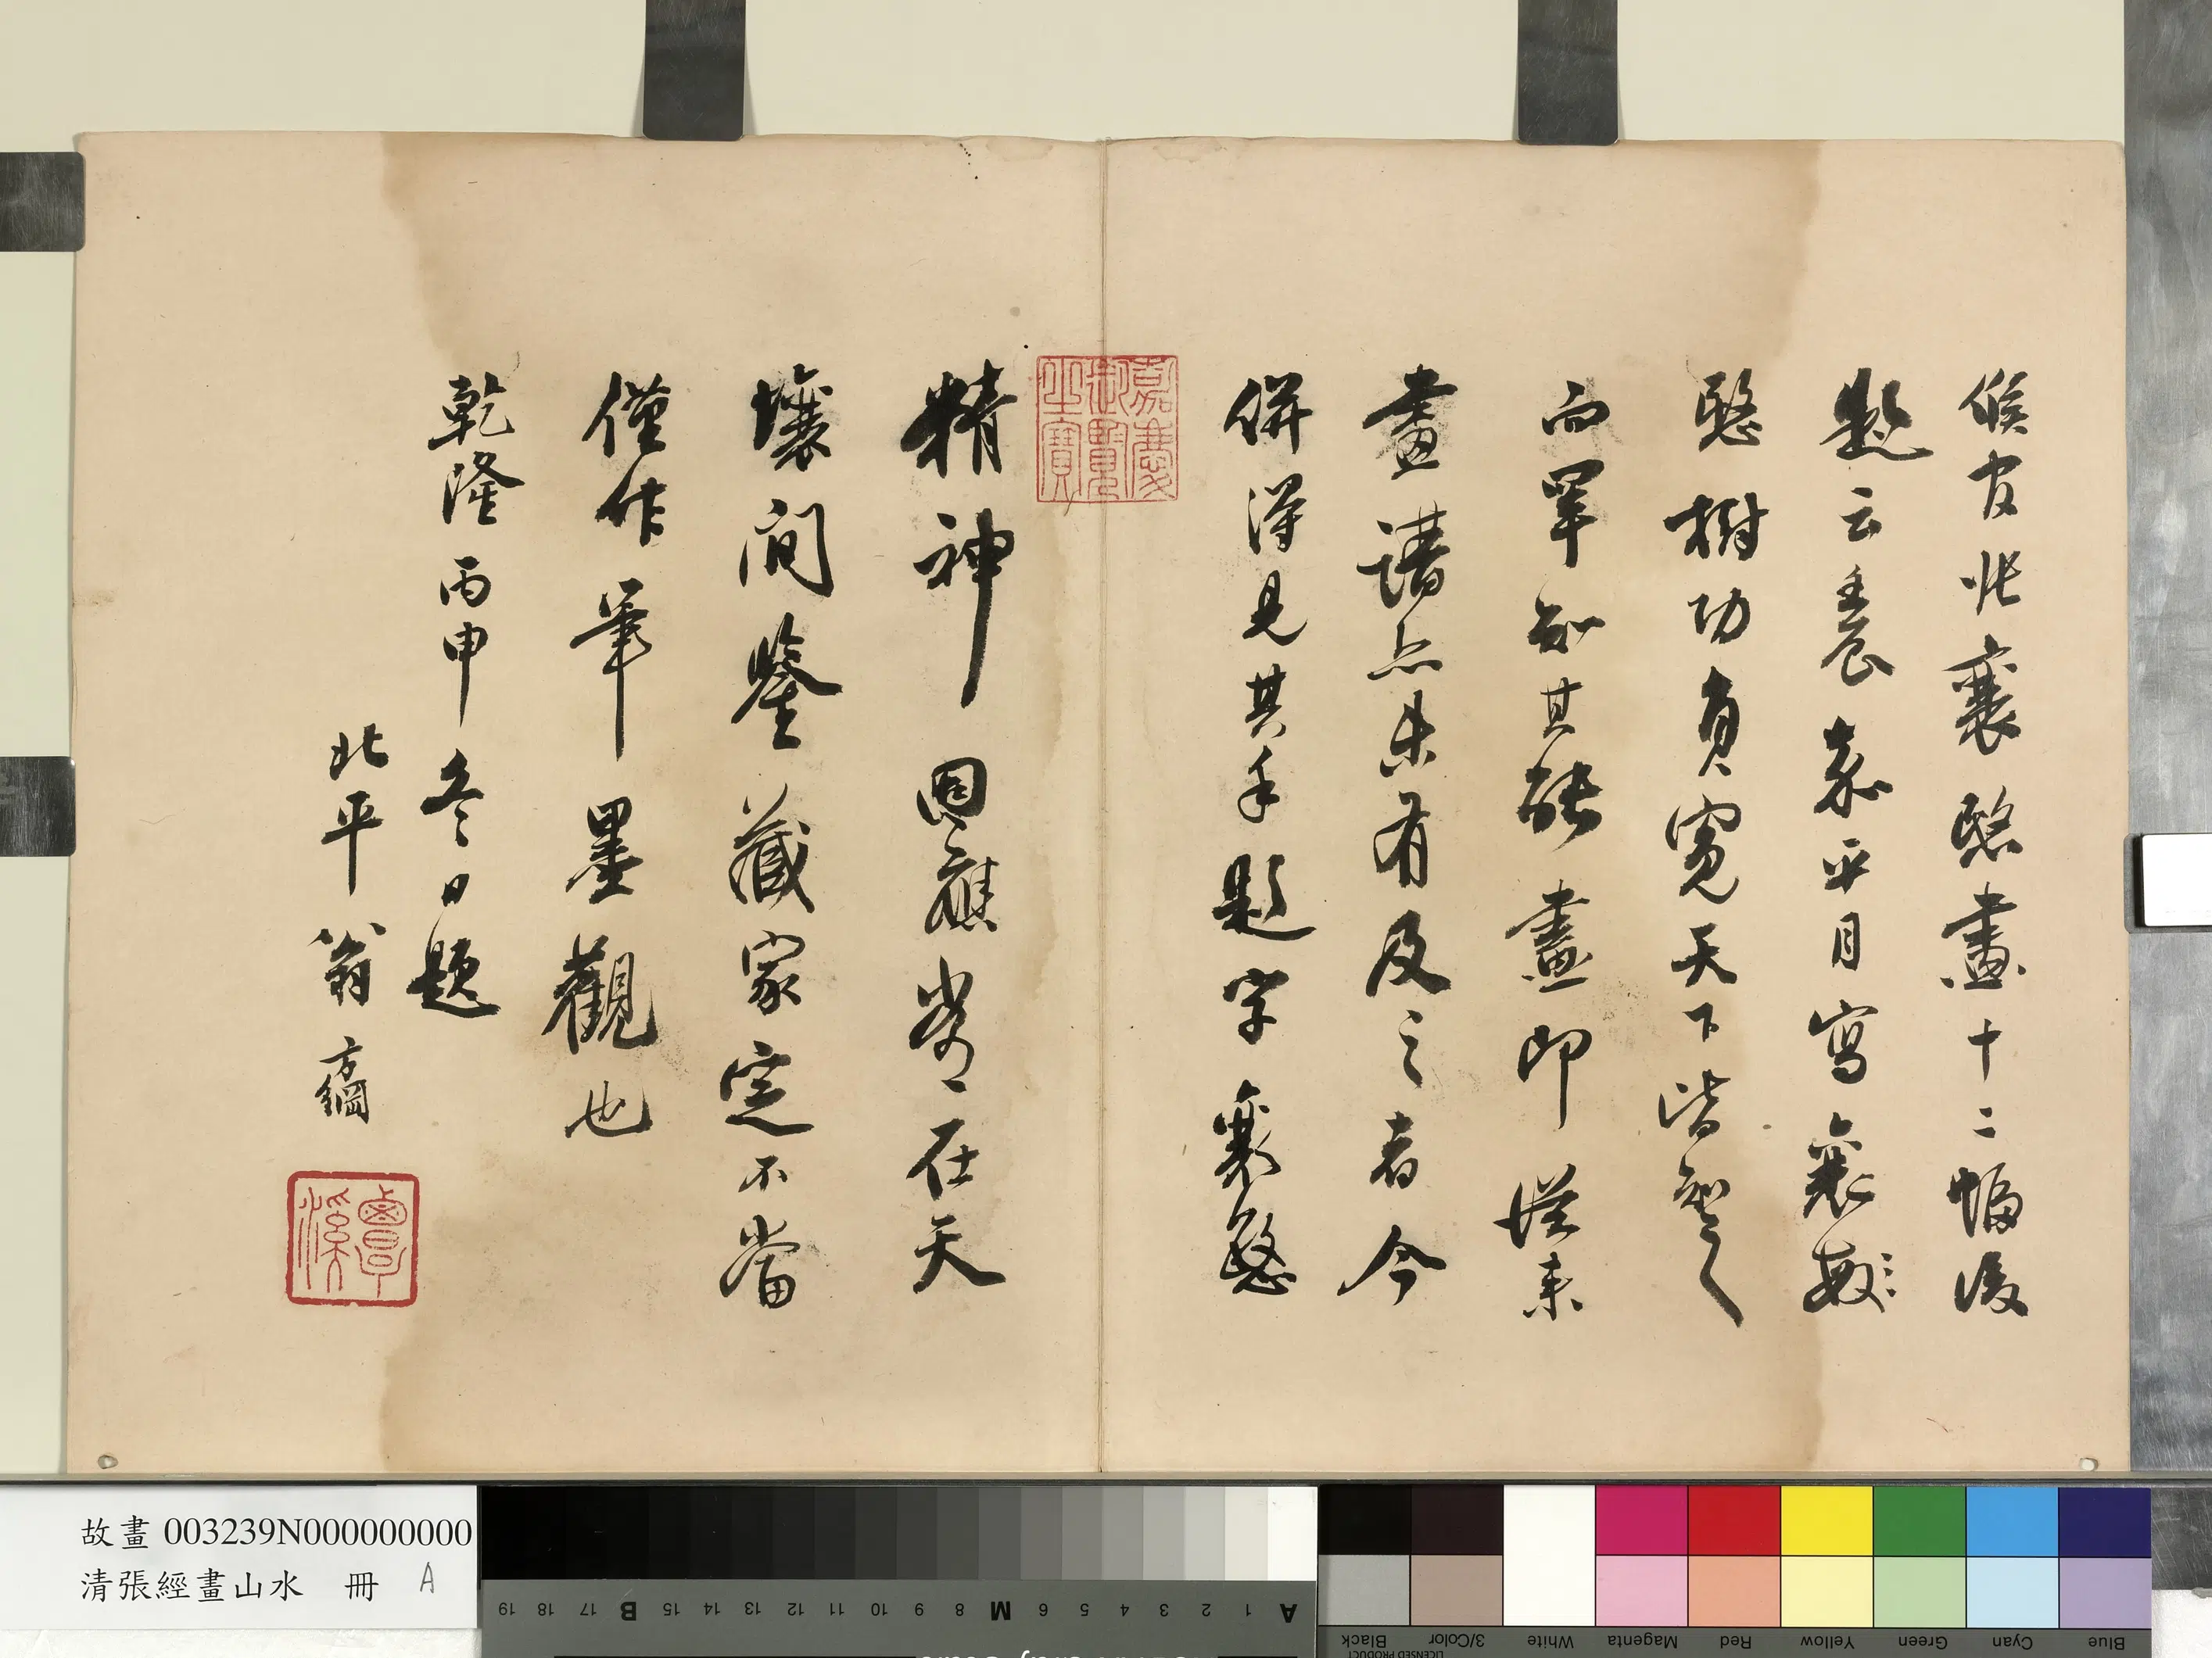 候官張襄愍畫十二幅後
題云壬辰嘉平月寫襄敏
愍樹功負冤天下皆知之
而罕知其能畫即從來
畫譜亦未有及之者今
併得見其手題字襄愍
嘉慶御覽之寶
精神固應常在天
壤間鑒藏家定不當
僅作筆墨觀也
乾隆丙申冬日題
北平翁方綱
覃溪
故畫 003239N000000000
清張經畫山水 冊 A
A 1 2 3 4 5 6 M 8 9 10 11 12 13 14 15 B 17 18 19
Blue Cyan Green Yellow Red Magenta White 3/Color Black
LICENSED PRODUCT